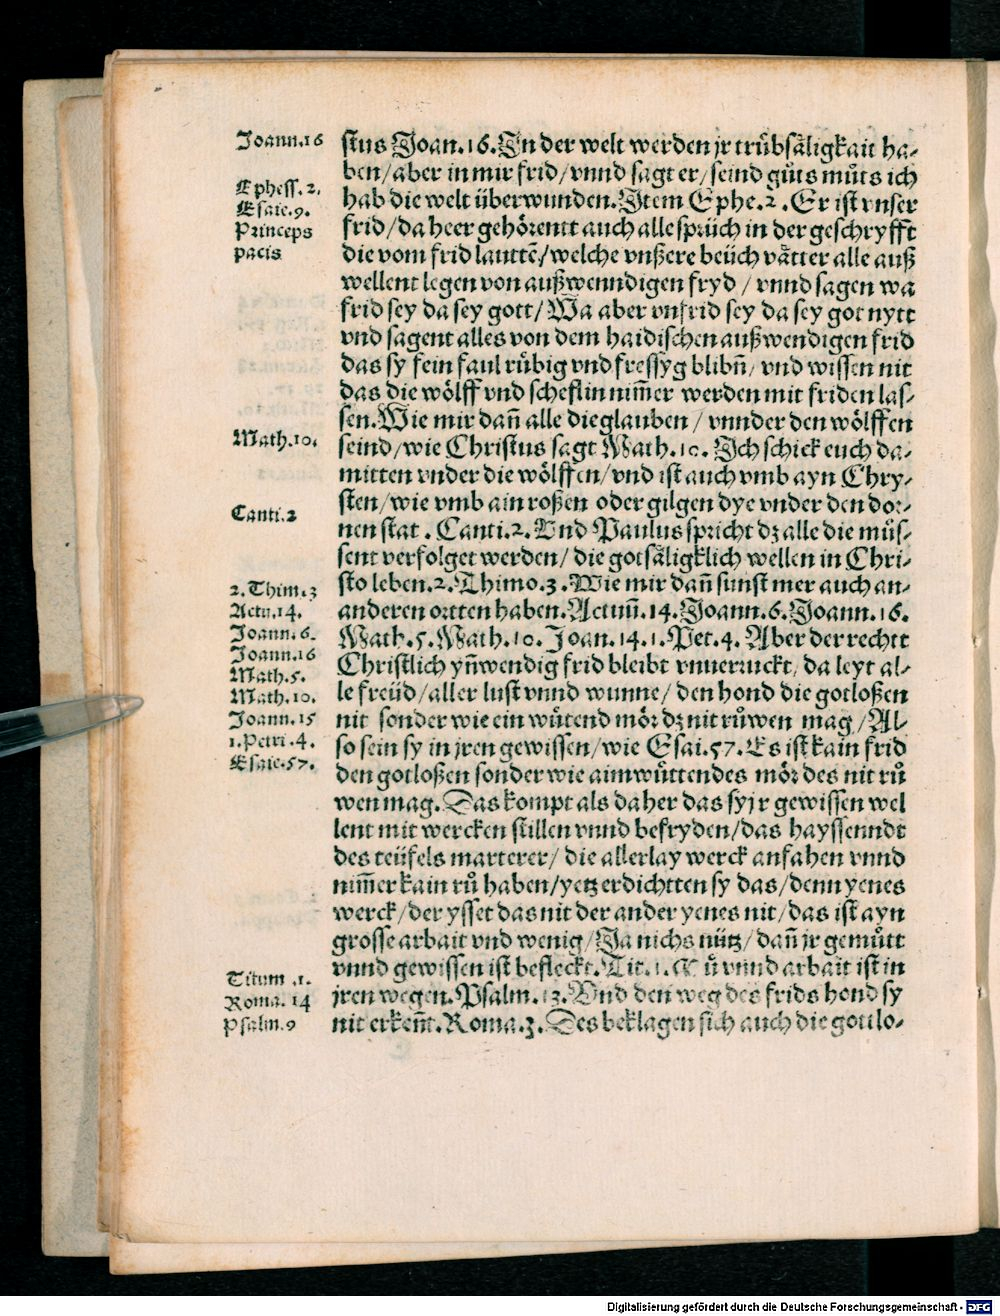 Joann.16
Ephess. 2.
Esaie. 9.
Princeps
pacis
Math.10.
Canti.2
2. Thim.3
Actu.14.
Joann. 6.
Joann.16
Math. 5.
Math. 10.
Joann. 15
1. Petri .4.
Esaie.57.
Titum .1.
Roma. 14
Psalm. 9
stus Joan. 16. In der welt werden jr trübsäligkait ha-
ben/ aber in mir frid/ vnnd sagt er/ seind gůts můts ich
hab die welt überwunden. Item Ephe. 2. Er ist vnser
frid/ da heer gehörentt auch alle sprüch in der geschryfft
die vom frid lauttẽ/ welche vnßere beüch vätter alle auß
wellent legen von außwenndigen fryd / vnnd sagen wa
frid sey da sey gott/ Wa aber vnfrid sey da sey got nytt
vnd sagent alles von dem haidischen außwendigen frid
das sy fein faul rübig vnd fressyg blibñ/ vnd wissen nit
das die wölff vnd scheflin nim̃er werden mit friden las-
sen. Wie mir dañ alle die glauben / vnnder den wölffen
seind/ wie Christus sagt Math. 10. Ich schick euch da-
mitten vnder die wölffen/ vnd ist auch vmb ayn Chry-
sten/ wie vmb ain roßen oder gilgen dye vnder den dor-
nen stat . Canti. 2. Vnd Paulus spricht dz alle die müs-
sent verfolget werden/ die gotsäligklich wellen in Chri-
sto leben. 2. Thimo. 3. Wie mir dañ sunst mer auch an-
anderen ortten haben. Actuũ. 14. Joann. 6. Joann. 16.
Math. 5. Math. 10. Joan. 14. 1. Pet. 4. Aber der rechtt
Christlich yñwendig frid bleibt vnueruckt/ da leyt al-
le freüd/ aller lust vnnd wunne/ den hond die gotloßen
nit sonder wie ein wütend mör dz nit růwen mag / Al-
so sein sy in jren gewissen/ wie Esai. 57. Es ist kain frid
den gotloßen sonder wie aim wůttendes mör des nit rů
wen mag. Das kompt als daher das sy jr gewissen wel
lent mit wercken stillen vnnd befryden/ das hayssenndt
des teüfels marterer/ die allerlay werck anfahen vnnd
nim̃er kain rů haben/ yetz erdichtten sy das/ denn yenes
werck/ der ysset das nit der ander yenes nit/ das ist ayn
grosse arbait vnd wenig/ Ja nichs nütz/ dañ jr gemůtt
vnnd gewissen ist befleckt. Tit. 1. vnnd arbait ist in
jren wegen. Psalm. 13. Vnd den weg des frids hond sy
nit erkeñt. Roma. 3. Des beklagen sich auch die gottlo-
Digitalisierung gefördert durch die Deutsche Forschungsgemeinschaft - DFG